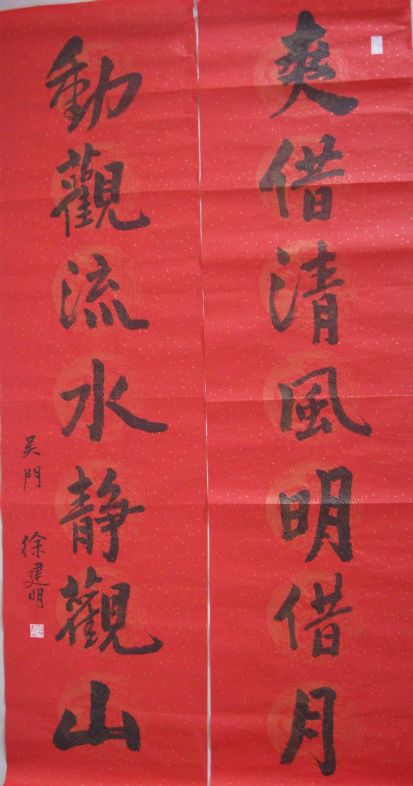 爽借清風明借月
動觀流水静觀山
吴門 徐建明